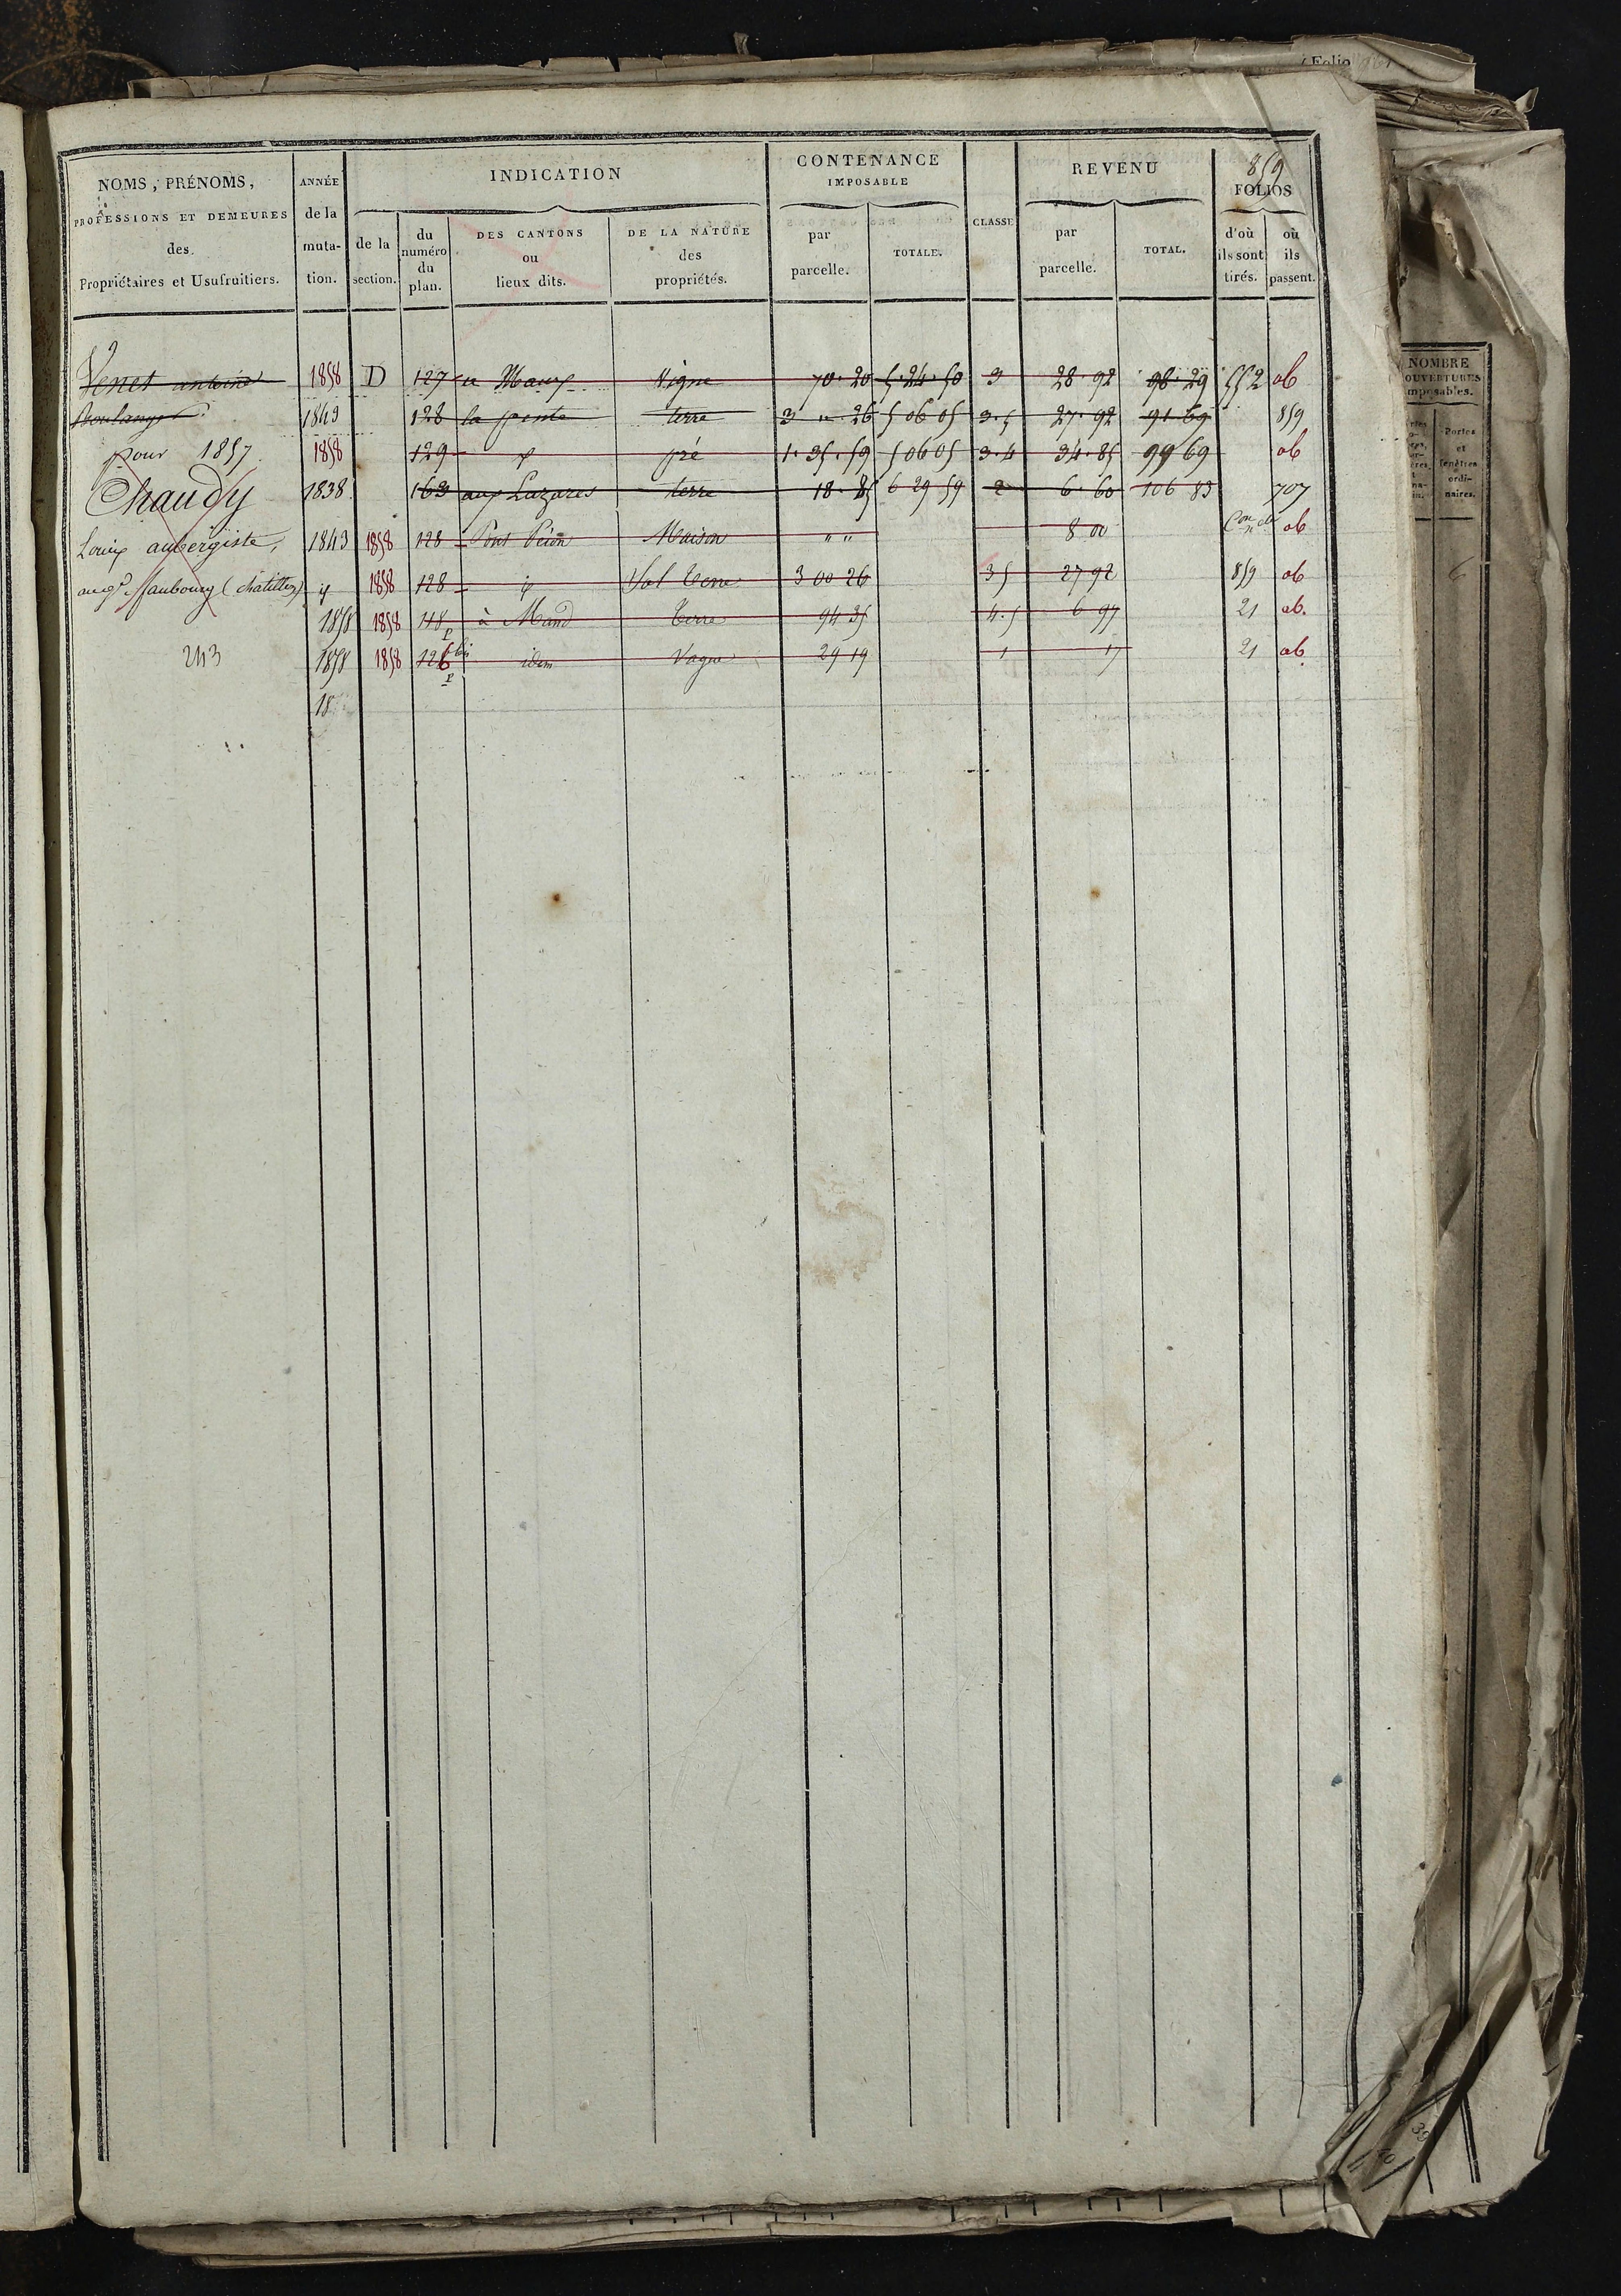 859
NOMS, PRÉNOMS, PROFESSIONS ET DEMEURES des Propriétaires et Usufruitiers.
ANNÉE de la muta- tion.
INDICATION
de la section.
du numéro du plan.
DES CANTONS ou lieux dits.
DE LA NATURE des propriétés.
CONTENANCE IMPOSABLE
par parcelle.
TOTALE.
CLASSE
REVENU
par parcelle.
TOTAL.
FOLIOS
d'où ils sont tirés.
où ils passent.
Venet antoine 1858 D 127 a Maux Vigne 70. 20 5. 24. 50 3 28. 92 98. 29 552 ob
Boulanger 1843 128 la pente terre 3 " 26 5 06 05 3. 5 27. 92 91 69 859
pour 1857 1858 129 pré 1. 35. 59 5 06 05 3. 4 34. 85 99 69 ob
Chaudy 1838 163 aux Lazares terre 18. 85 6 29 59 2 6. 60 106 83 707
Louis aubergiste, 1843 1858 128 Pont Maison " " 8 00 ob
faubourg (chatillon) 1858 128 Sol terre 3 00 26 3 5 27 92 859 ob
1858 1858 118 p à Mand Terre 94 35 4. 5 6 97 21 ob.
243 1858 1858 126 bis p idem Vague 29 19 1 17 21 ob
18
Folio
NOMBRE
OUVERTURES
imposables.
Portes
et
fenêtres
ordi-
naires.
6
39